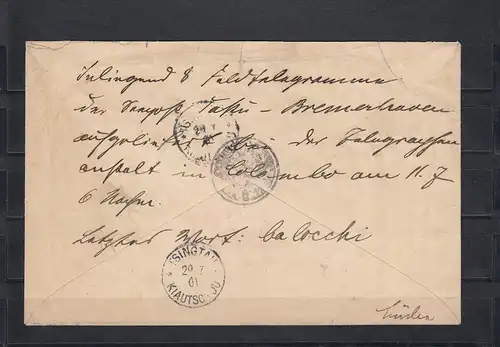 Inliegend 8 Feldtelegramme
der Seepost Taku - Bremerhaven
aufgeliefert bei der Telegraphen
anstalt in Colombo am 11. 7
6 Nachm.
Letztes Wort: Calocchi
TSINGTAU
29 7
01
KIAUTSCHOU